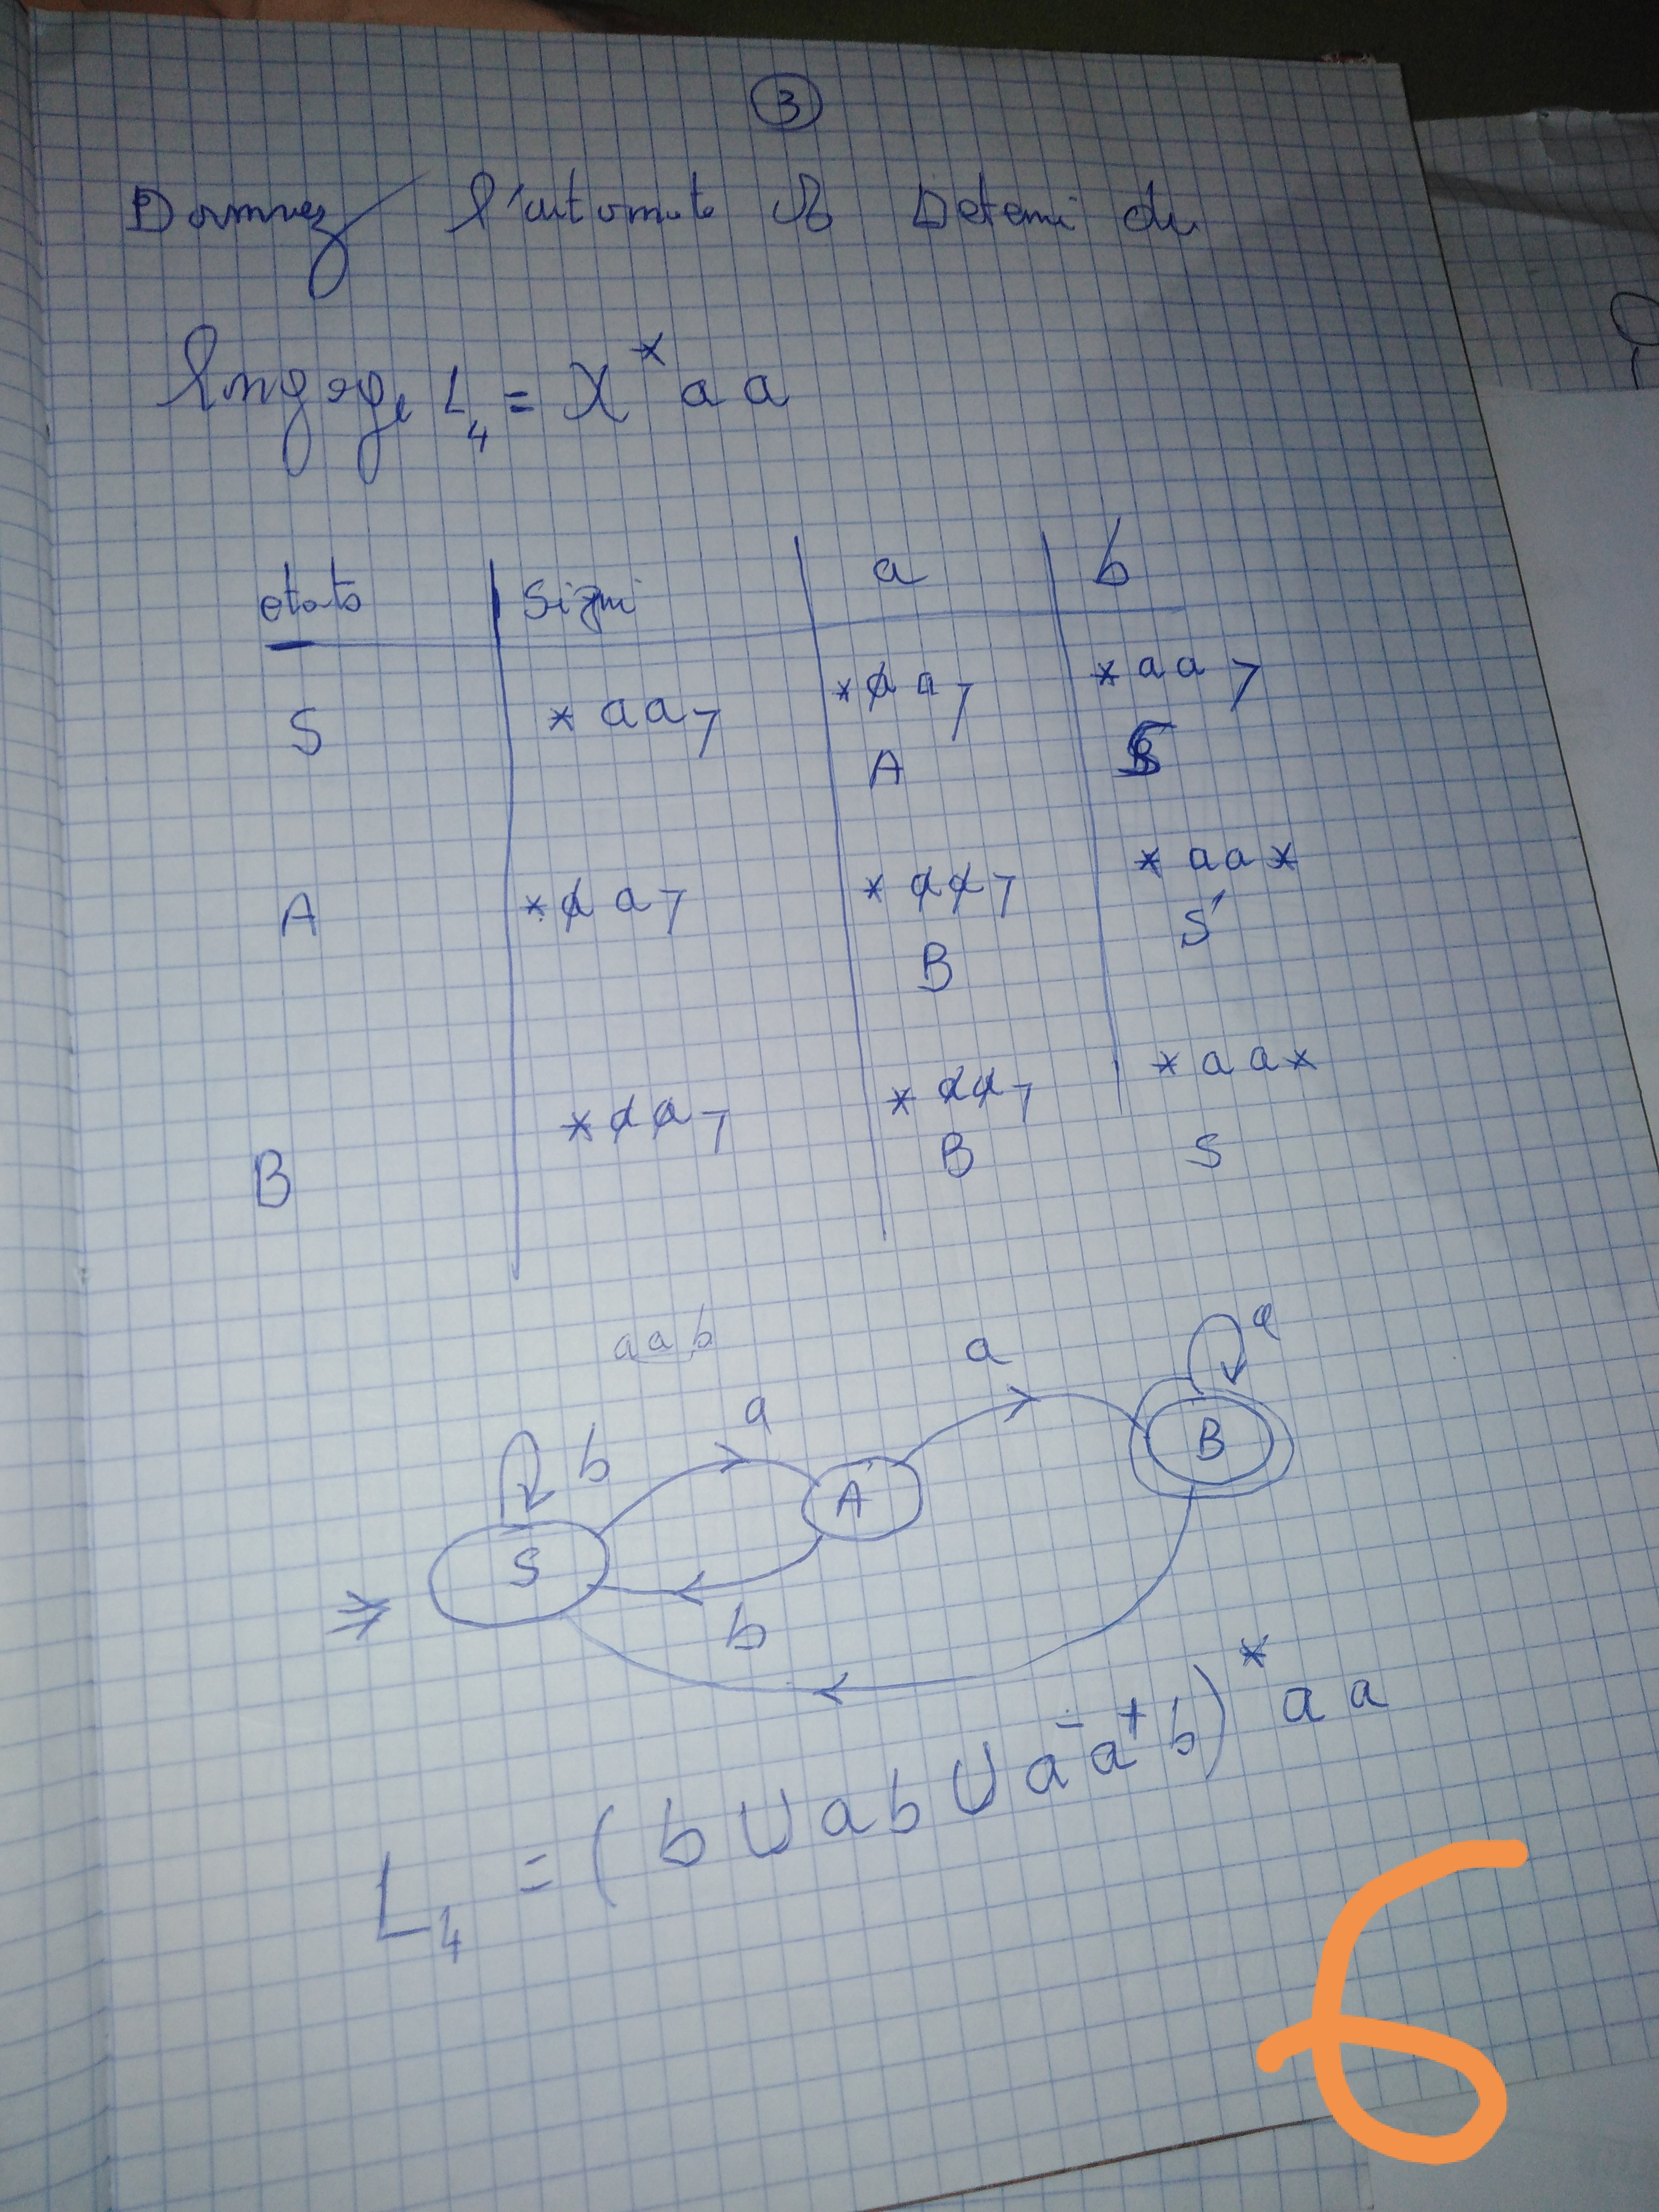 3
Donnez l'automate Determi du
langage L4 = X* aa
etats Signi a b
S *aa7 *aa7 *aa7
A S
A *aa7 *aa7 *aax
B S
B *aa7 *aa7 *aax
B S
aab
b a a a
S A B
b
L4 = (b U ab U a a+ b)* aa
6